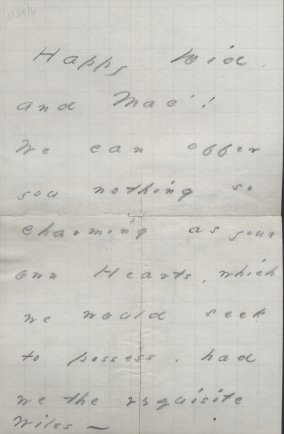 Happy Did
and Mac'!
We can offer
you nothing so
charming as your
own Hearts, which
we would seek
to possess, had
we the requisite
Wiles —